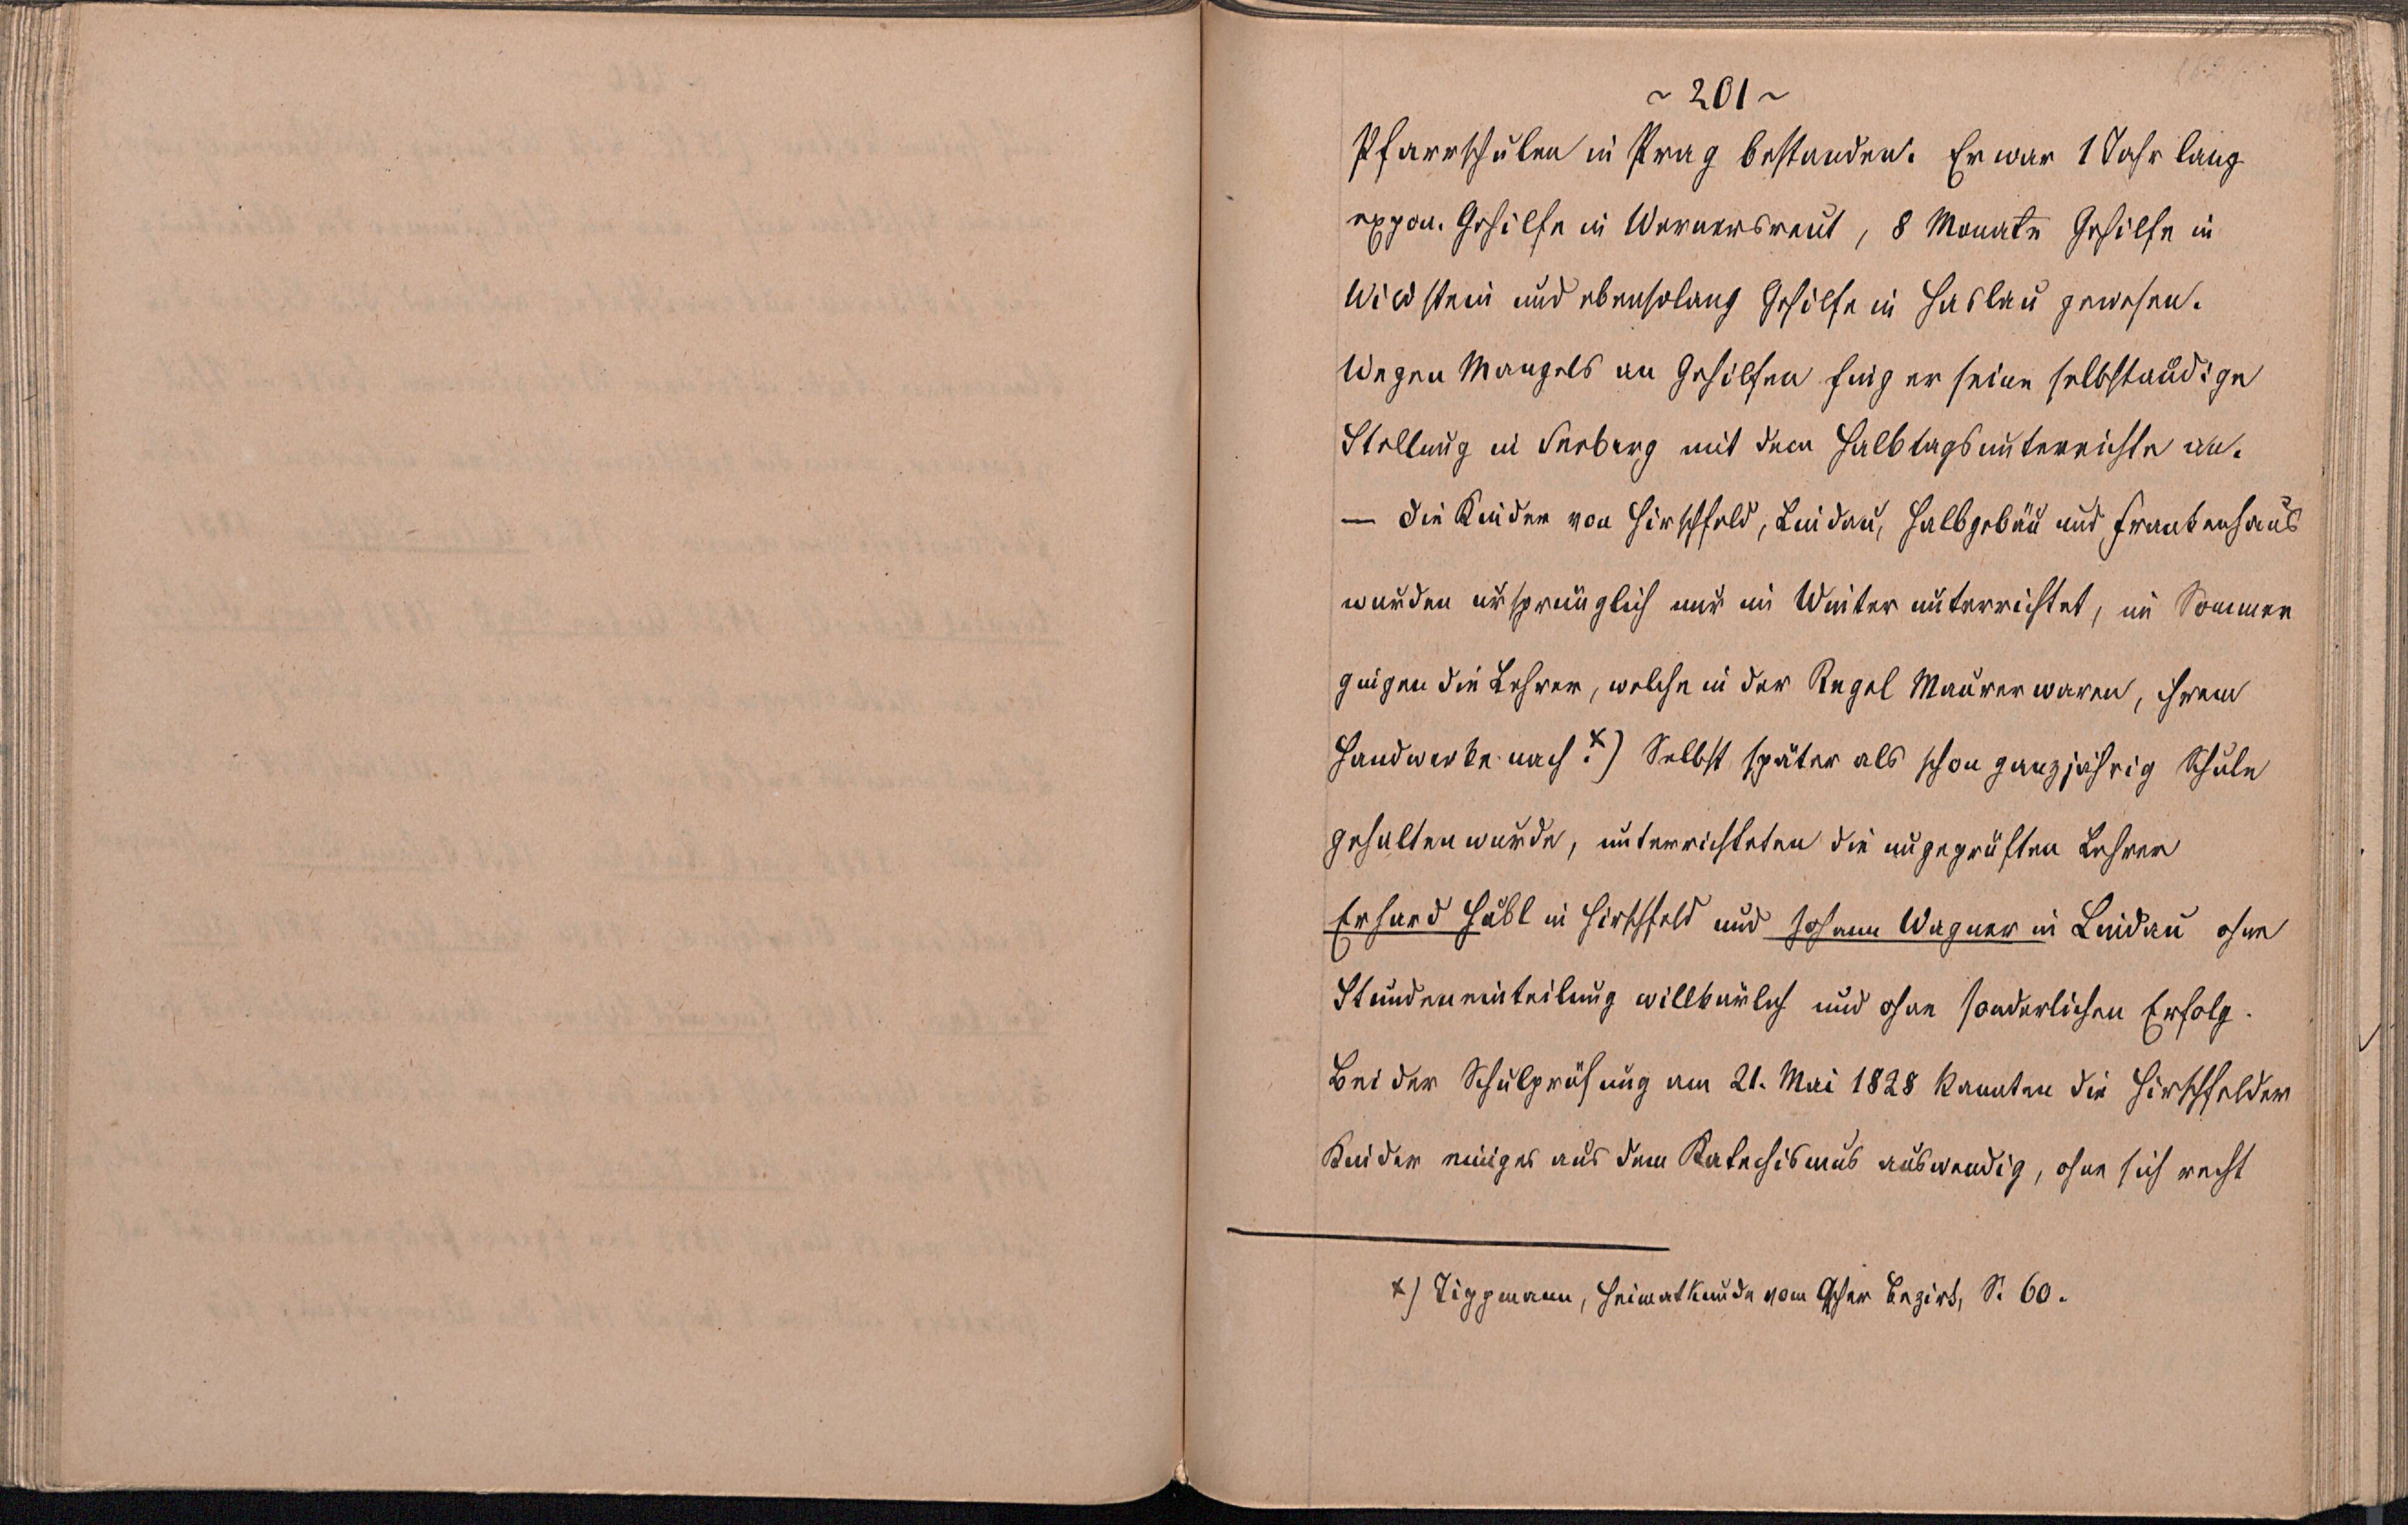 ~ 201 ~
Pfarrschulen in Prag bestanden. Er war 1 Jahr lang
expon. Gehilfe in Wernersreut, 8 Monate Gehilfe in
Wildstein und ebensolang Gehilfe in Haslau gewesen.
Wegen Mangels an Gehilfen fing er seine selbständige
Stellung in Seeberg mit dem Halbtagsunterrichte an.
— Die Kinder von Hirschfeld, Lindau, Halbgebäu und Frankenhaus
wurden ursprünglich nur im Winter unterrichtet, im Sommer
gingen die Lehrer, welche in der Regel Maurer waren, ihrem
Handwerke nach.x) Selbst später als schon ganzjährig Schule
gehalten wurde, unterrichteten die ungeprüften Lehrer
Erhard Häbl in Hirschfeld und Johann Wagner in Lindau ohne
Stundeneinteilung willkürlich und ohne sonderlichen Erfolg.
Bei der Schulprüfung am 21. Mai 1828 kannten die Hirschfelder
Kinder einiges aus dem Katechismus auswendig, ohne sich recht
x) Tippmann, Heimatkunde vom Ascher Bezirk, S. 60.